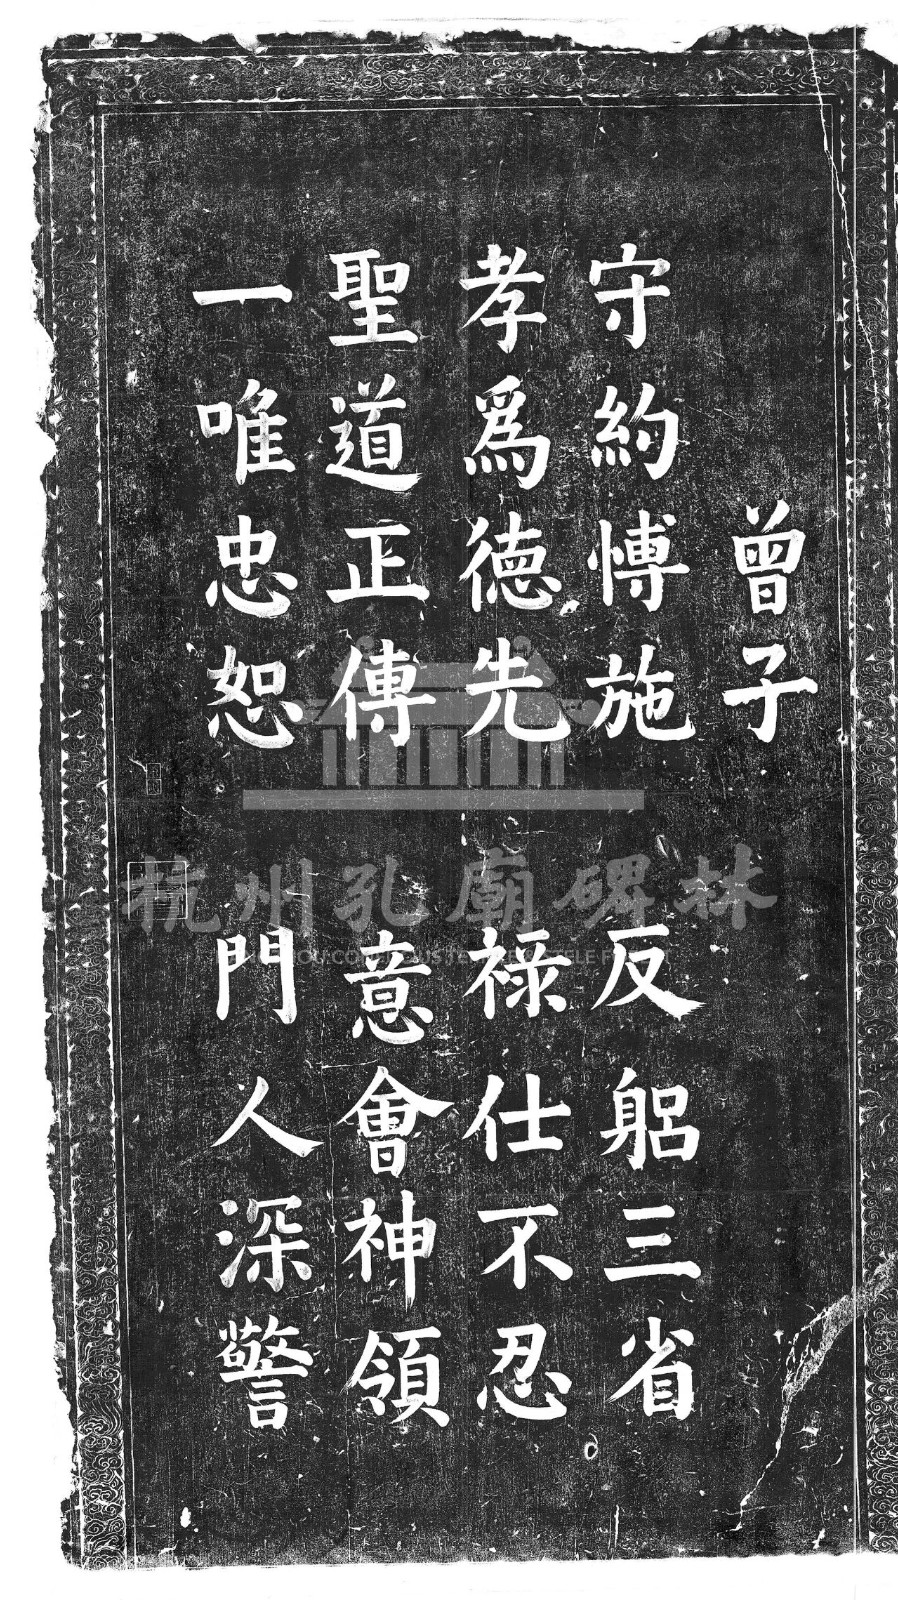 曾子
守約博施 反躳三省
孝爲德先 祿仕不忍
聖道正傳 意會神領
一唯忠恕 門人深警
杭州孔廟碑林